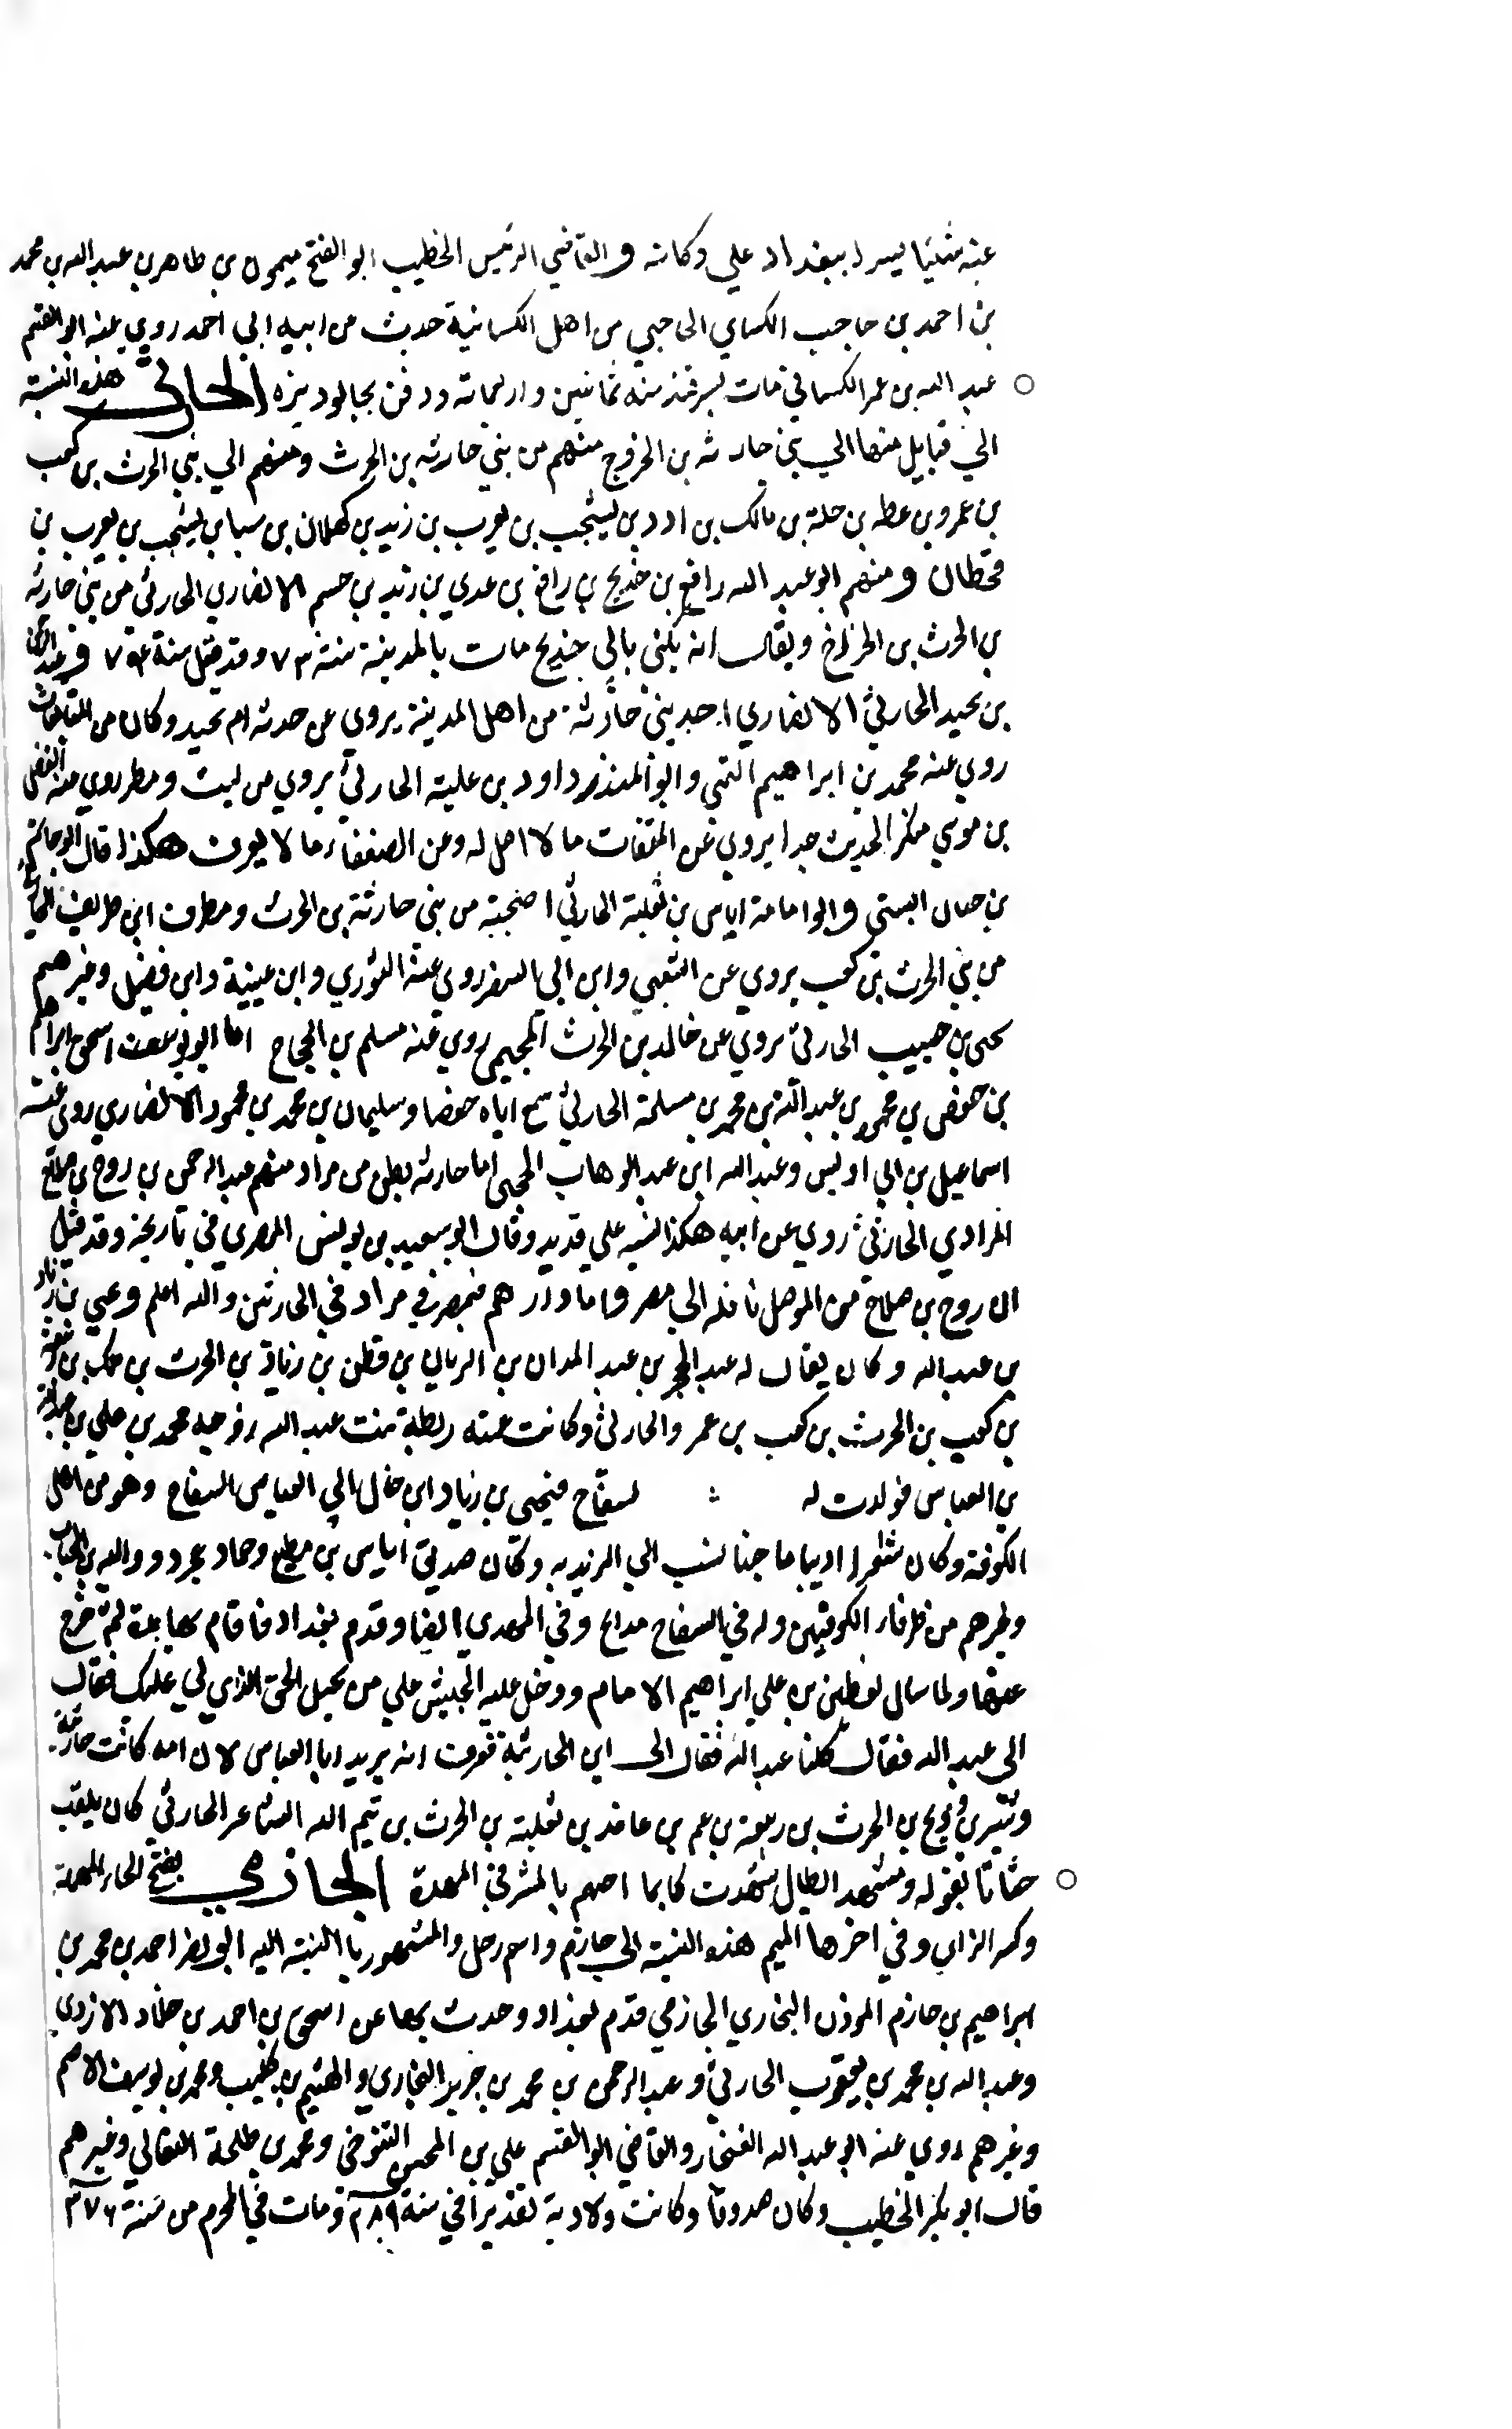 عنه شيئا يسيرا ببغداد علي دكانه و القاضي الرئيس الخطيب ابو الفتح ميمون بن طاهر بن عبد الله بن محمد
بن احمد بن حاجب الكساي الحاجبي من اهل الكسانية حدث من ابيه ابي احمد روي عنه ابو القسم
عبد الله بن عمر الكساني مات بسرقند سنه ثمانين واربعمائه ودفن بجالوديزه الحارثي هذه النسبة
الي قبايل منها الي بني حارثه بن الخزرج منهم من بني حارثه بن الحرث ومنهم الي بني الحرث بن كعب
بن عمرو بن عله بن جلة بن مالك بن ادد بن يشجب بن يعرب بن زيد بن كهلان بن سبا بن يشجب بن يعرب بن
قحطان و منهم ابو عبد الله رافع بن خديج بن رافع بن عدي بن زيد بن جسم الانصاري الحارثي من بني حارثه
بن الحرث بن الخزرج ويقال انه يكني بابي خديج مات بالمدينة سنة ٧٣ وقد قيل سنة ٧٤ و عبد الرحمن
بن بجيد الحارثي الانصاري احد بني حارثة من اهل المدينة يروي عن جدته ام بجيد وكان من
روي عنه محمد بن ابراهيم التيمي وابو المنذر داود بن علية الحارثي يروي من ليث ومطر روي عنه الفضل
بن موسي منكر الحديث جدا يروي عن الثقات ما لا اصل له وعن الضعفاء ما لا يعرف هكذا قال ابو حاتم
بن حبان البستي و ابو امامة اياس بن ثعلبة الحارثي له صحبة من بني حارثة بن الحرث ومطرف ابن طريف الحارثي
من بني الحرث بن كعب يروي عن الشعبي وابن ابي السفر روي عنه الثوري وابن عيينة وابن فضيل وغيرهم
يحيى بن حبيب الحارثي يروي عن خالد بن الحرث الهجيمي روي عنه مسلم بن الحجاج اما ابو يوسف اسحق ابراهيم
بن حفص بن محمود بن عبد الله بن محمد بن مسلمة الحارثي سمع اباه حفصا وسليمان بن محمد بن محمود الانصاري روي عنه
اسماعيل بن ابي اويس وعبد الله ابن عبد الوهاب الحجبي اما حارثه بطن من مراد منهم عبد الرحمن بن روح بن صلاح
المرادي الحارثي روي عن ابيه هكذا نسبه علي قديد وقال ابو سعيد بن يونس المصري في تاريخه وقد قيل
ان روح بن صلاح من الموصل ناقله الي مصر و اما دارهم فبمصر في مراد في الحارثين والله اعلم و يحيي بن زياد
بن عبد الله وكان يقال له عبد الحجر بن عبد المدان بن الريان بن قطن بن زياد بن الحرث بن مالك بن ربيعة
بن كعب بن الحرث بن كعب بن عمرو الحارثي وكانت عمته ريطة بنت عبد الله زوجه محمد بن علي بن عبد الله
بن العباس فولدت له لسفاح فيحيي بن زياد ابن خال ابي العباس السفاح وهو من اهل
الكوفة وكان شاعرا اديبا ماجنا نسب الي الزندقه وكان صديق اياس بن مطيع وحماد عجرد ووالبه بن الحباب
وغيرهم من ظرفاء الكوفيين وله في السفاح مدايح وفي المهدي ايضا وقدم بغداد فاقام بها مدة ثم خرج
عنها ولما سال يقطين بن علي ابراهيم الامام ودخل عليه الجيش علي من يحيل الحق الذي لي عليك فقال
الي عبد الله فقال كلنا عبد الله فقال الي ابن الحارثية فعرف انه يريد ابا العباس لان امه كانت حارثية
بن الحرث بن ربيعة بن غنم بن عائد بن ثعلبة بن الحرث بن تيم الله الشاعر الحارثي كان يلقب
بقوله ومشهد ابطال شهدت كانما احسهم بالمشرفي المهند الحازمي بفتح الحاء المهملة
وكسر الزاي وفي اخرها الميم هذه النسبة الي حازم واسم رجل والمشهور بالنسبة اليه ابو نصر احمد بن محمد بن
ابراهيم بن حازم الموذن البخاري الحازمي قدم بغداد وحدث بها عن اسحق بن احمد بن خلاد الازدي
وعبد الله بن محمد بن يعقوب الحارثي و عبد الرحمن بن محمد بن جرير البخاري والهيثم بن كليب ومحمد بن يوسف الاصم
وغيرهم روي عنه ابو عبد الله الغنجار والقاضي ابو القسم علي بن المحسن التنوخي ومحمد بن طلحة النعالي وغيرهم
قال ابو بكر الخطيب وكان صدوقا وكانت ولادته تقديرا في سنة ٢٨٩ ومات في المحرم من سنة ٣٧٦